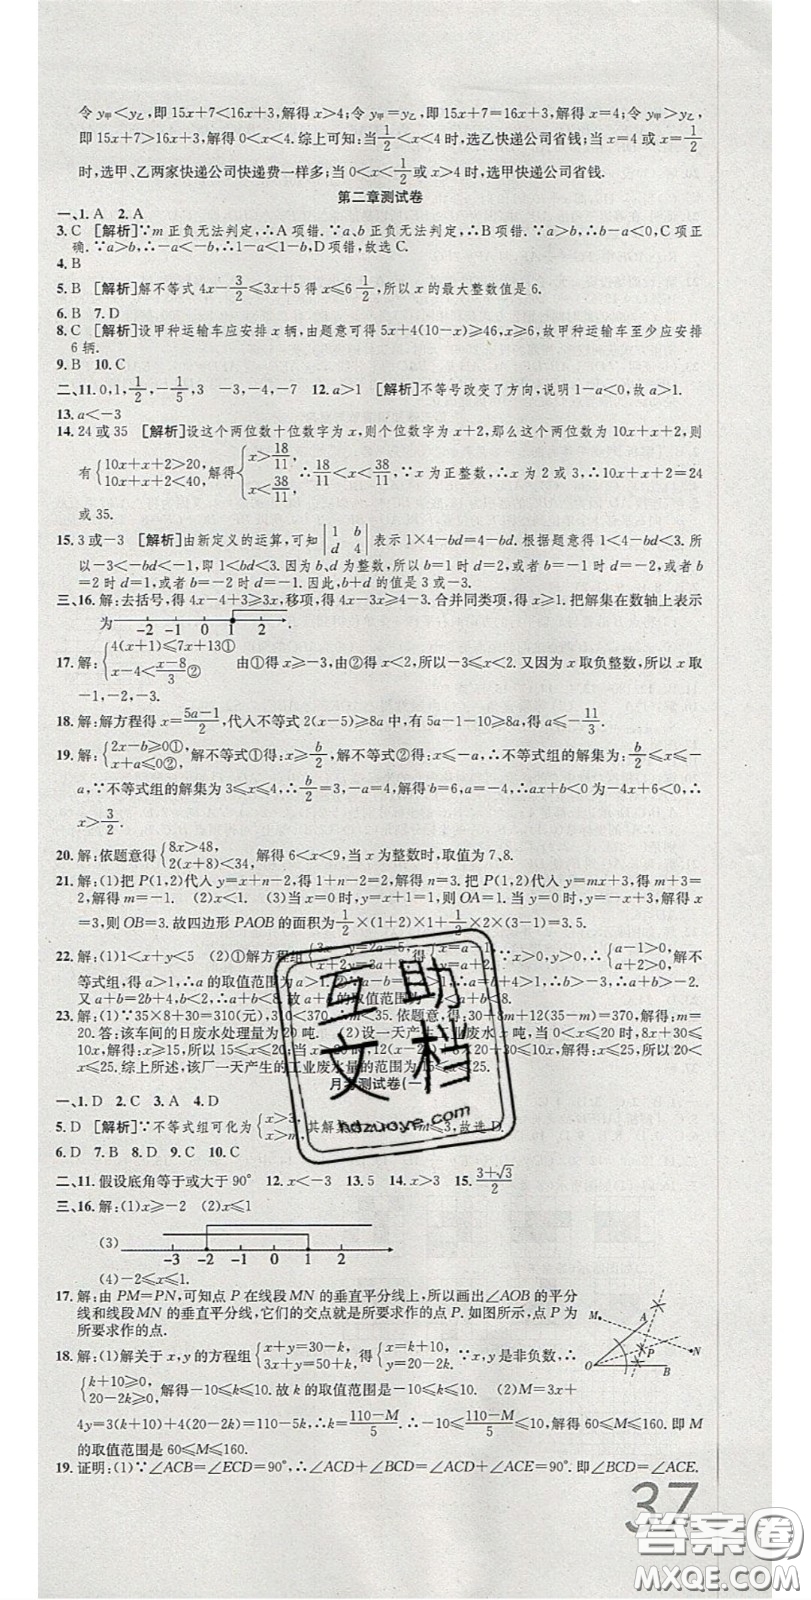 令 y甲<y乙,即 15x+7<16x+3,解得 x>4;令 y甲=y乙,即 15x+7=16x+3,解得 x=4;令 y甲>y乙,
即 15x+7>16x+3,解得 0<x<4.综上可知:当 1/2<x<4 时,选乙快递公司省钱;当 x=4 或 x=1/2
时,选甲、乙两家快递公司快递费一样多;当 0<x<1/2 或 x>4 时,选甲快递公司省钱.
第二章测试卷
一、1. A 2. A
3. C [解析]∵m 正负无法判定,∴A 项错.∵a、b 正负无法判定,∴B 项错.∵a>b,∴b-a<0,C 项正
确.∵a>b,∴-a<-b,∴1-a<1-b,D 项错,故选 C.
4. B
5. B [解析]解不等式 4x-3/2≤3x+5 得 x≤6 1/2,所以 x 的最大整数值是 6.
6. B 7. D
8. C [解析]设甲种运输车应安排 x 辆,由题意可得 5x+4(10-x)≥46,x≥6,故甲种运输车至少应安排
6 辆.
9. B 10. C
二、11. 0,1,1/2,-1/5,3 -3,-4,-7 12. a>1 [解析]不等号改变了方向,说明 1-a<0,故 a>1.
13. a<-3
14. 24 或 35 [解析]设这个两位数十位数字为 x,则个位数字为 x+2,那么这个两位数为 10x+x+2,则
有{10x+x+2>20, 10x+x+2<40,解得{x>18/11 x<38/11 ∴18/11<x<38/11,∵x 为正整数,∴x 为 2 或 3,∴10x+x+2=24
或 35.
15. 3 或-3 [解析]由新定义的运算,可知 |1 b d 4| 表示 1×4-bd=4-bd.根据题意得 1<4-bd<3.所
以-3<-bd<-1,即 1<bd<3.因为 b、d 为整数,所以 b=1 时 d=2,或者 b=-1 时 d=-2,或者 b
=2 时 d=1,或者 b=-2 时 d=-1.因此,b+d 的值是 3 或-3.
三、16. 解:去括号,得 4x-4+3≥3x,移项,得 4x-3x≥4-3.合并同类项,得 x≥1.把解集在数轴上表示
为 -2 -1 0 1 2 .
17. 解:{4(x+1)≤7x+13① x-4<x-8/3② 由①得 x≥-3,由②得 x<2,所以-3≤x<2.又因为 x 取负整数,所以 x 取
-1,-2,-3.
18. 解:解方程得 x=5a-1/2,代入不等式 2(x-5)≥8a 中,有 5a-1-10≥8a,得 a≤-11/3.
19. 解:{2x-b≥0①, x+a≤0②,解不等式①得:x≥b/2,解不等式②得:x≤-a,∴不等式组的解集为:b/2≤x≤-
a,∵不等式组的解集为 3≤x≤4,∴b/2=3,-a=4,解得 b=6,a=-4,∴ax+b<0 为-4x+6<0,∴
x>3/2.
20. 解:依题意得{8x>48, 2(x+8)<34,解得 6<x<9,当 x 为整数时,取值为 7、8.
21. 解:(1)把 P(1,2)代入 y=x+n-2,得 1+n-2=2,解得 n=3.把 P(1,2)代入 y=mx+3,得 m+3=
2,解得 m=-1. (2)x<1. (3)当 x=0 时,y=x+1=1,则 OA=1.当 y=0 时,-x+3=0,解得 x
=3,则 OB=3.故四边形 PAOB 的面积为1/2×(1+2)×1+1/2×2×(3-1)=3.5.
22. 解:(1)1<x+y<5 (2)①解方程组{3x-y=2a-5, x+2y=3a+3,得{x=a-1, y=a+2.∵x>0,y>0,∴{a-1>0, a+2>0,解不
等式组,得 a>1,∴a 的取值范围为 a>1.②∵a-b=
又 a+b=2b+4,a+b=2a-4.故 a+b 的取值范围为-
23. 解:(1)∵35×8+30=310(元),310<370,∴m<35.依题意,得:30+8m+12(35-m)=370,解得:m=
20.答:该车间的日废水处理量为 20 吨. (2)设一天产生工业废水 x 吨,当 0<x≤20 时,8x+30≤
10x,解得:x≥15,所以 15≤x≤20;当 x>20 时,12(x-20)+8×20+30≤10x,解得:x≤25,所以 20<
x≤25.综上所述,该厂一天产生的工业废水量的范围为 15≤x≤25.
月考测试卷(一)
一、1. D 2. C 3. A 4. D
5. D [解析]∵不等式组可化为{x>3, x>m,其解集 m≤3,故选 D.
6. D 7. B 8. D 9. C 10. C
二、11. 假设底角等于或大于 90° 12. x<-3 13. 5 14. x>3 15. 3+√3/2
三、16. 解:(1)x≥-2 (2)x≤1
(3) -3 -2 -1 0 1 2
(4)-2≤x≤1.
17. 解:由 PM=PN,可知点 P 在线段 MN 的垂直平分线上,所以画出∠AOB 的平分
线和线段 MN 的垂直平分线,它们的交点就是所要求作的点 P.如图所示,点 P 为
所要求作的点.
M A P N O B
18. 解:(1)解关于 x,y 的方程组{x+y=30-k, 3x+y=50+k,得{x=k+10, y=20-2k.∵x、y 是非负数,∴
{k+10≥0, 20-2k≥0,解得-10≤k≤10.故 k 的取值范围是-10≤k≤10. (2)M=3x+
4y=3(k+10)+4(20-2k)=110-5k,∴k=110-M/5.∴-10≤110-M/5≤10,解得 60≤M≤160.即 M
的取值范围是 60≤M≤160.
19. 证明:(1)∵∠ACB=∠ECD=90°,∴∠ACD+∠BCD=∠ACD+∠ACE=90°.即∠BCD=∠ACE.
37
互助文档
hdzuoye.com
答案圈
MXQE.COM